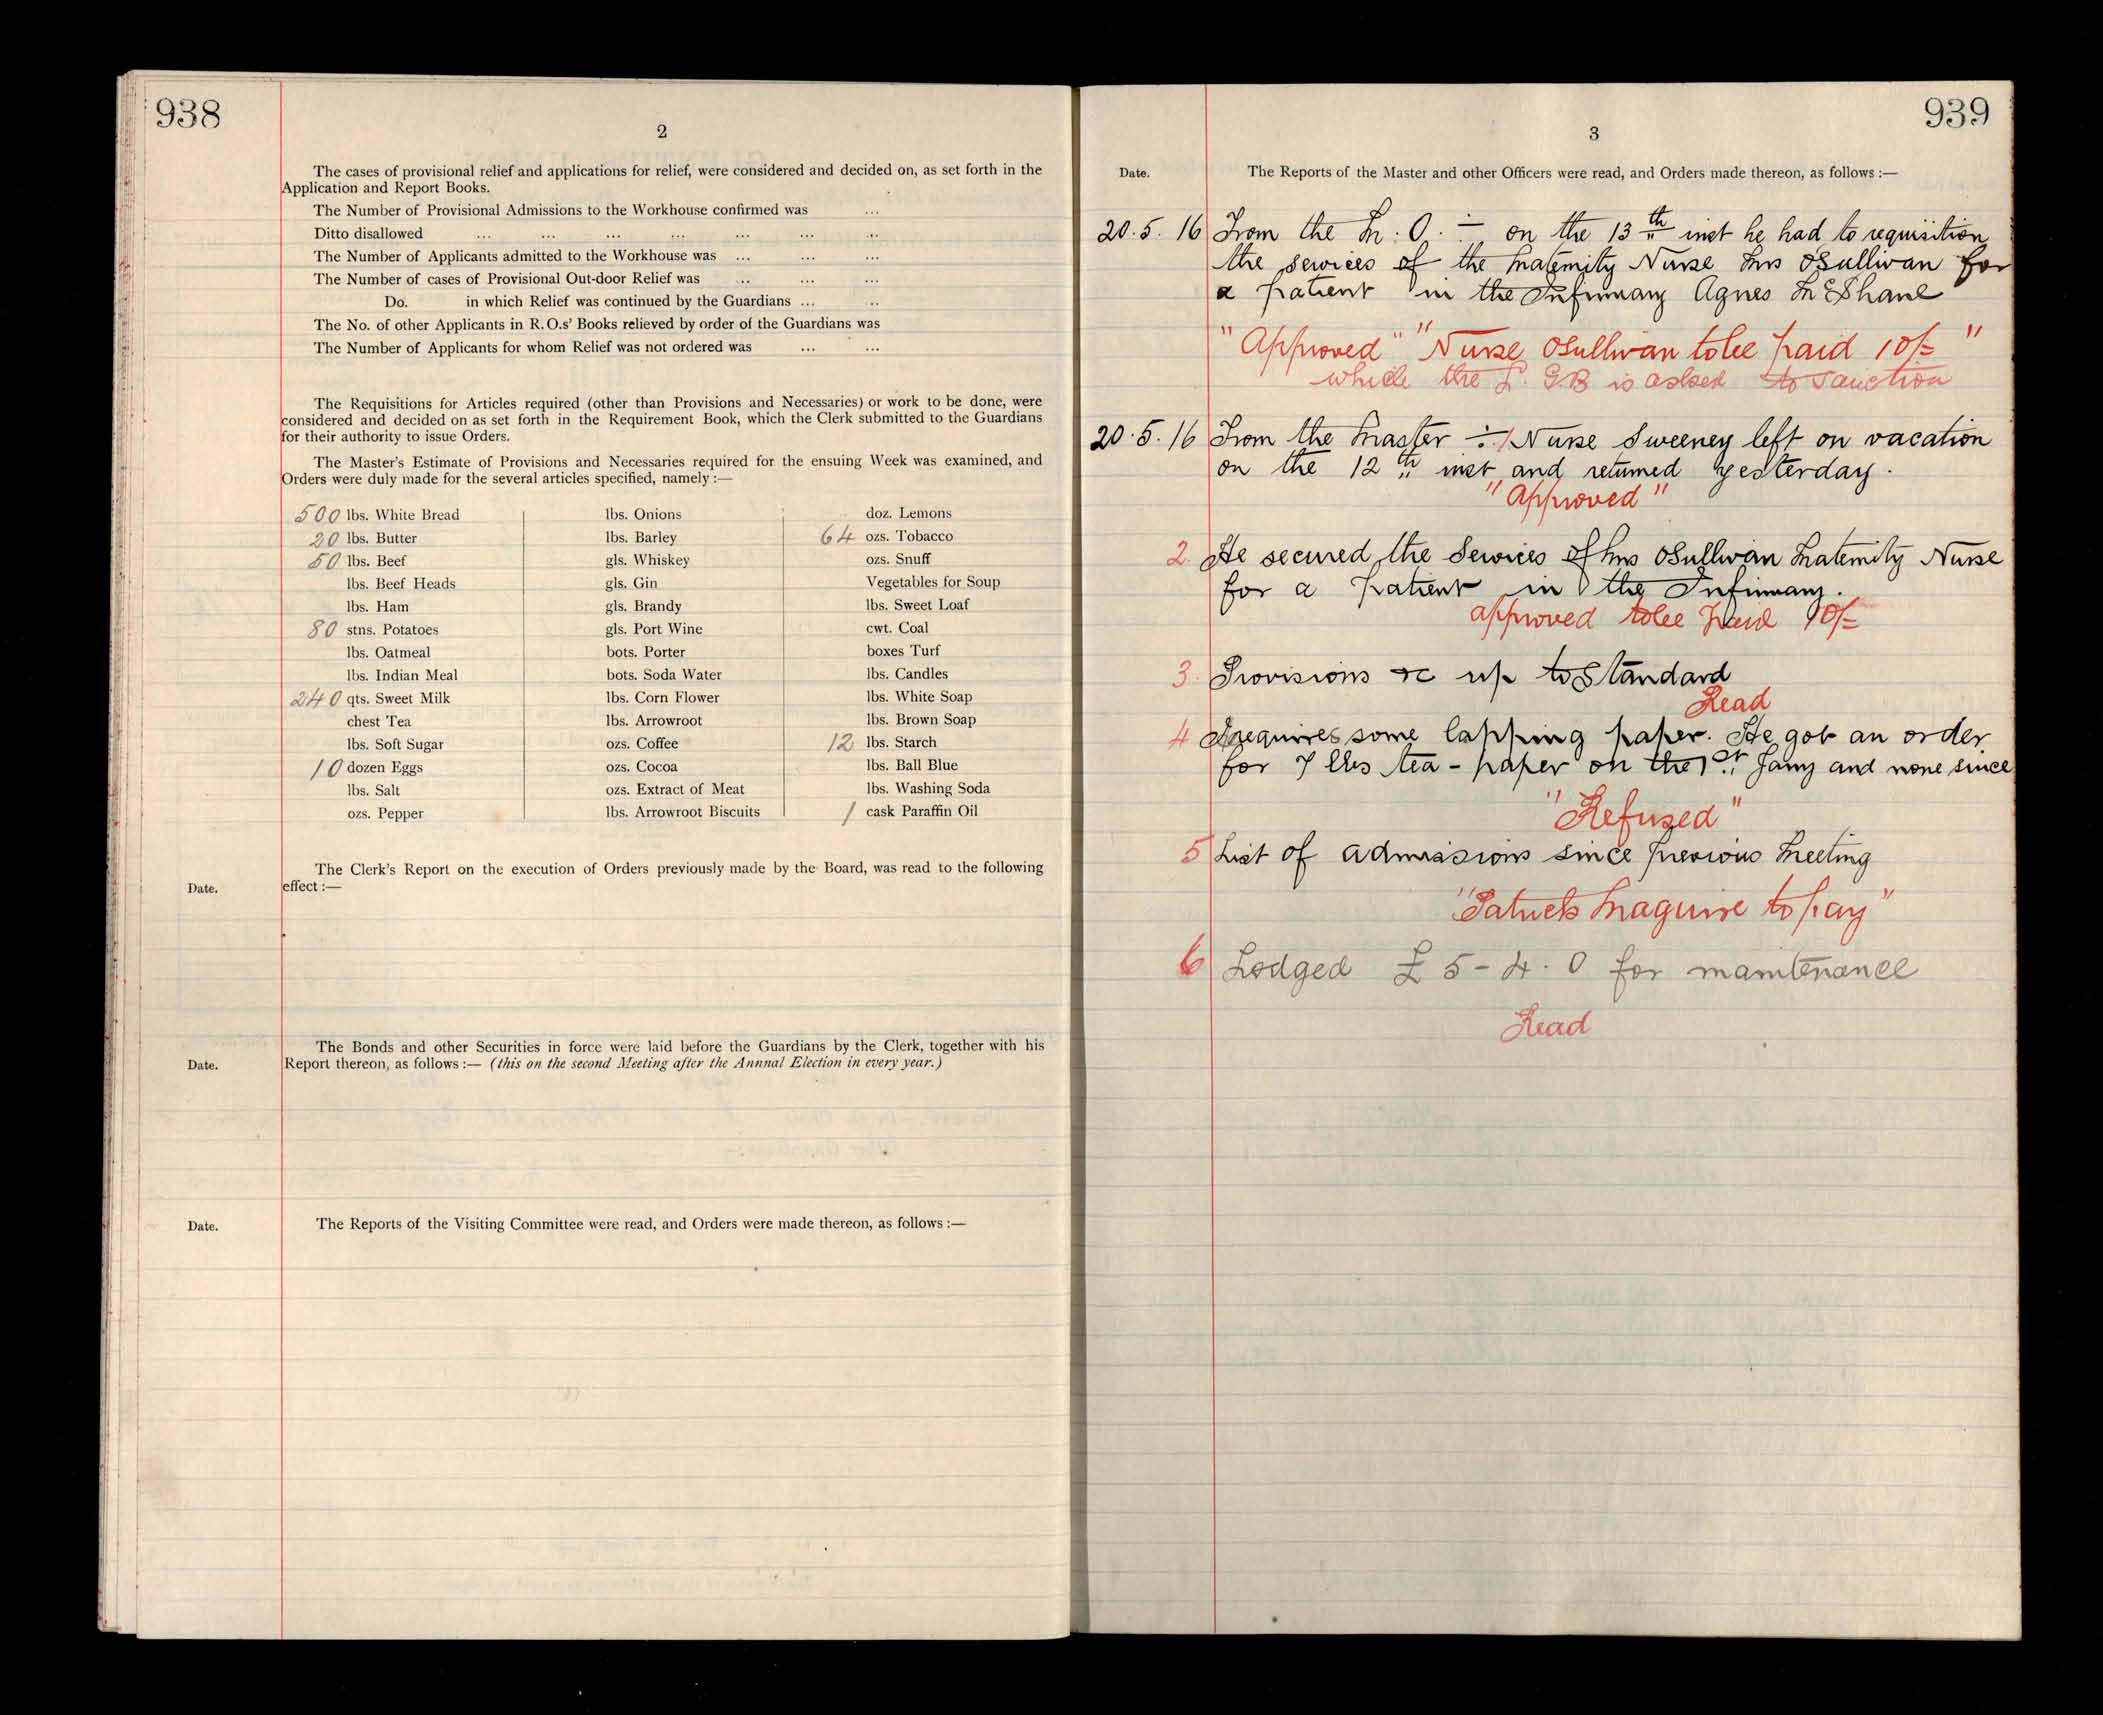 938
2
The cases of provisional relief and applications for relief, were considered and decided on, as set forth in the
Application and Report Books.
The Number of Provisional Admissions to the Workhouse confirmed was ...
Ditto disallowed ... ... ... ... ... ... ...
The Number of Applicants admitted to the Workhouse was ... ... ...
The Number of cases of Provisional Out-door Relief was ... ... ...
Do. in which Relief was continued by the Guardians ... ...
The No. of other Applicants in R.O.s' Books relieved by order of the Guardians was
The Number of Applicants for whom Relief was not ordered was ... ...
The Requisitions for Articles required (other than Provisions and Necessaries) or work to be done, were
considered and decided on as set forth in the Requirement Book, which the Clerk submitted to the Guardians
for their authority to issue Orders.
The Master's Estimate of Provisions and Necessaries required for the ensuing Week was examined, and
Orders were duly made for the several articles specified, namely :—
500 lbs. White Bread
20 lbs. Butter
50 lbs. Beef
lbs. Beef Heads
lbs. Ham
80 stns. Potatoes
lbs. Oatmeal
lbs. Indian Meal
240 qts. Sweet Milk
chest Tea
lbs. Soft Sugar
10 dozen Eggs
lbs. Salt
ozs. Pepper
lbs. Onions
lbs. Barley
gls. Whiskey
gls. Gin
gls. Brandy
gls. Port Wine
bots. Porter
bots. Soda Water
lbs. Corn Flower
lbs. Arrowroot
ozs. Coffee
ozs. Cocoa
ozs. Extract of Meat
lbs. Arrowroot Biscuits
doz. Lemons
64 ozs. Tobacco
ozs. Snuff
Vegetables for Soup
lbs. Sweet Loaf
cwt. Coal
boxes Turf
lbs. Candles
lbs. White Soap
lbs. Brown Soap
12 lbs. Starch
lbs. Ball Blue
lbs. Washing Soda
1 cask Paraffin Oil
The Clerk's Report on the execution of Orders previously made by the Board, was read to the following
Date. effect :—
The Bonds and other Securities in force were laid before the Guardians by the Clerk, together with his
Date. Report thereon, as follows :— (this on the second Meeting after the Annnal Election in every year.)
Date. The Reports of the Visiting Committee were read, and Orders were made thereon, as follows :—
939
3
Date. The Reports of the Master and other Officers were read, and Orders made thereon, as follows :—
20.5.16 From the M.O. :— on the 13th inst he had to requisition
the services of the Maternity Nurse Mrs OSullivan for
a patient in the Infirmary Agnes McShane
"Approved" "Nurse OSullivan to be paid 10/= "
which the L.GB is asked to sanction
20.5.16 From the Master :— 1 Nurse Sweeney left on vacation
on the 12th inst and returned yesterday.
"Approved"
2. He secured the Services of Mrs OSullivan Maternity Nurse
for a patient in the Infirmary.
approved to be paid 10/=
3. Provisions &c up to Standard
Read
4 requires some lapping paper. He got an order
for 7 lbs tea-paper on the 1st Jany and none since
"Refused"
5 List of admissions since previous Meeting
"Patrick Maguire to pay"
6 Lodged £5-4.0 for maintenance
Read